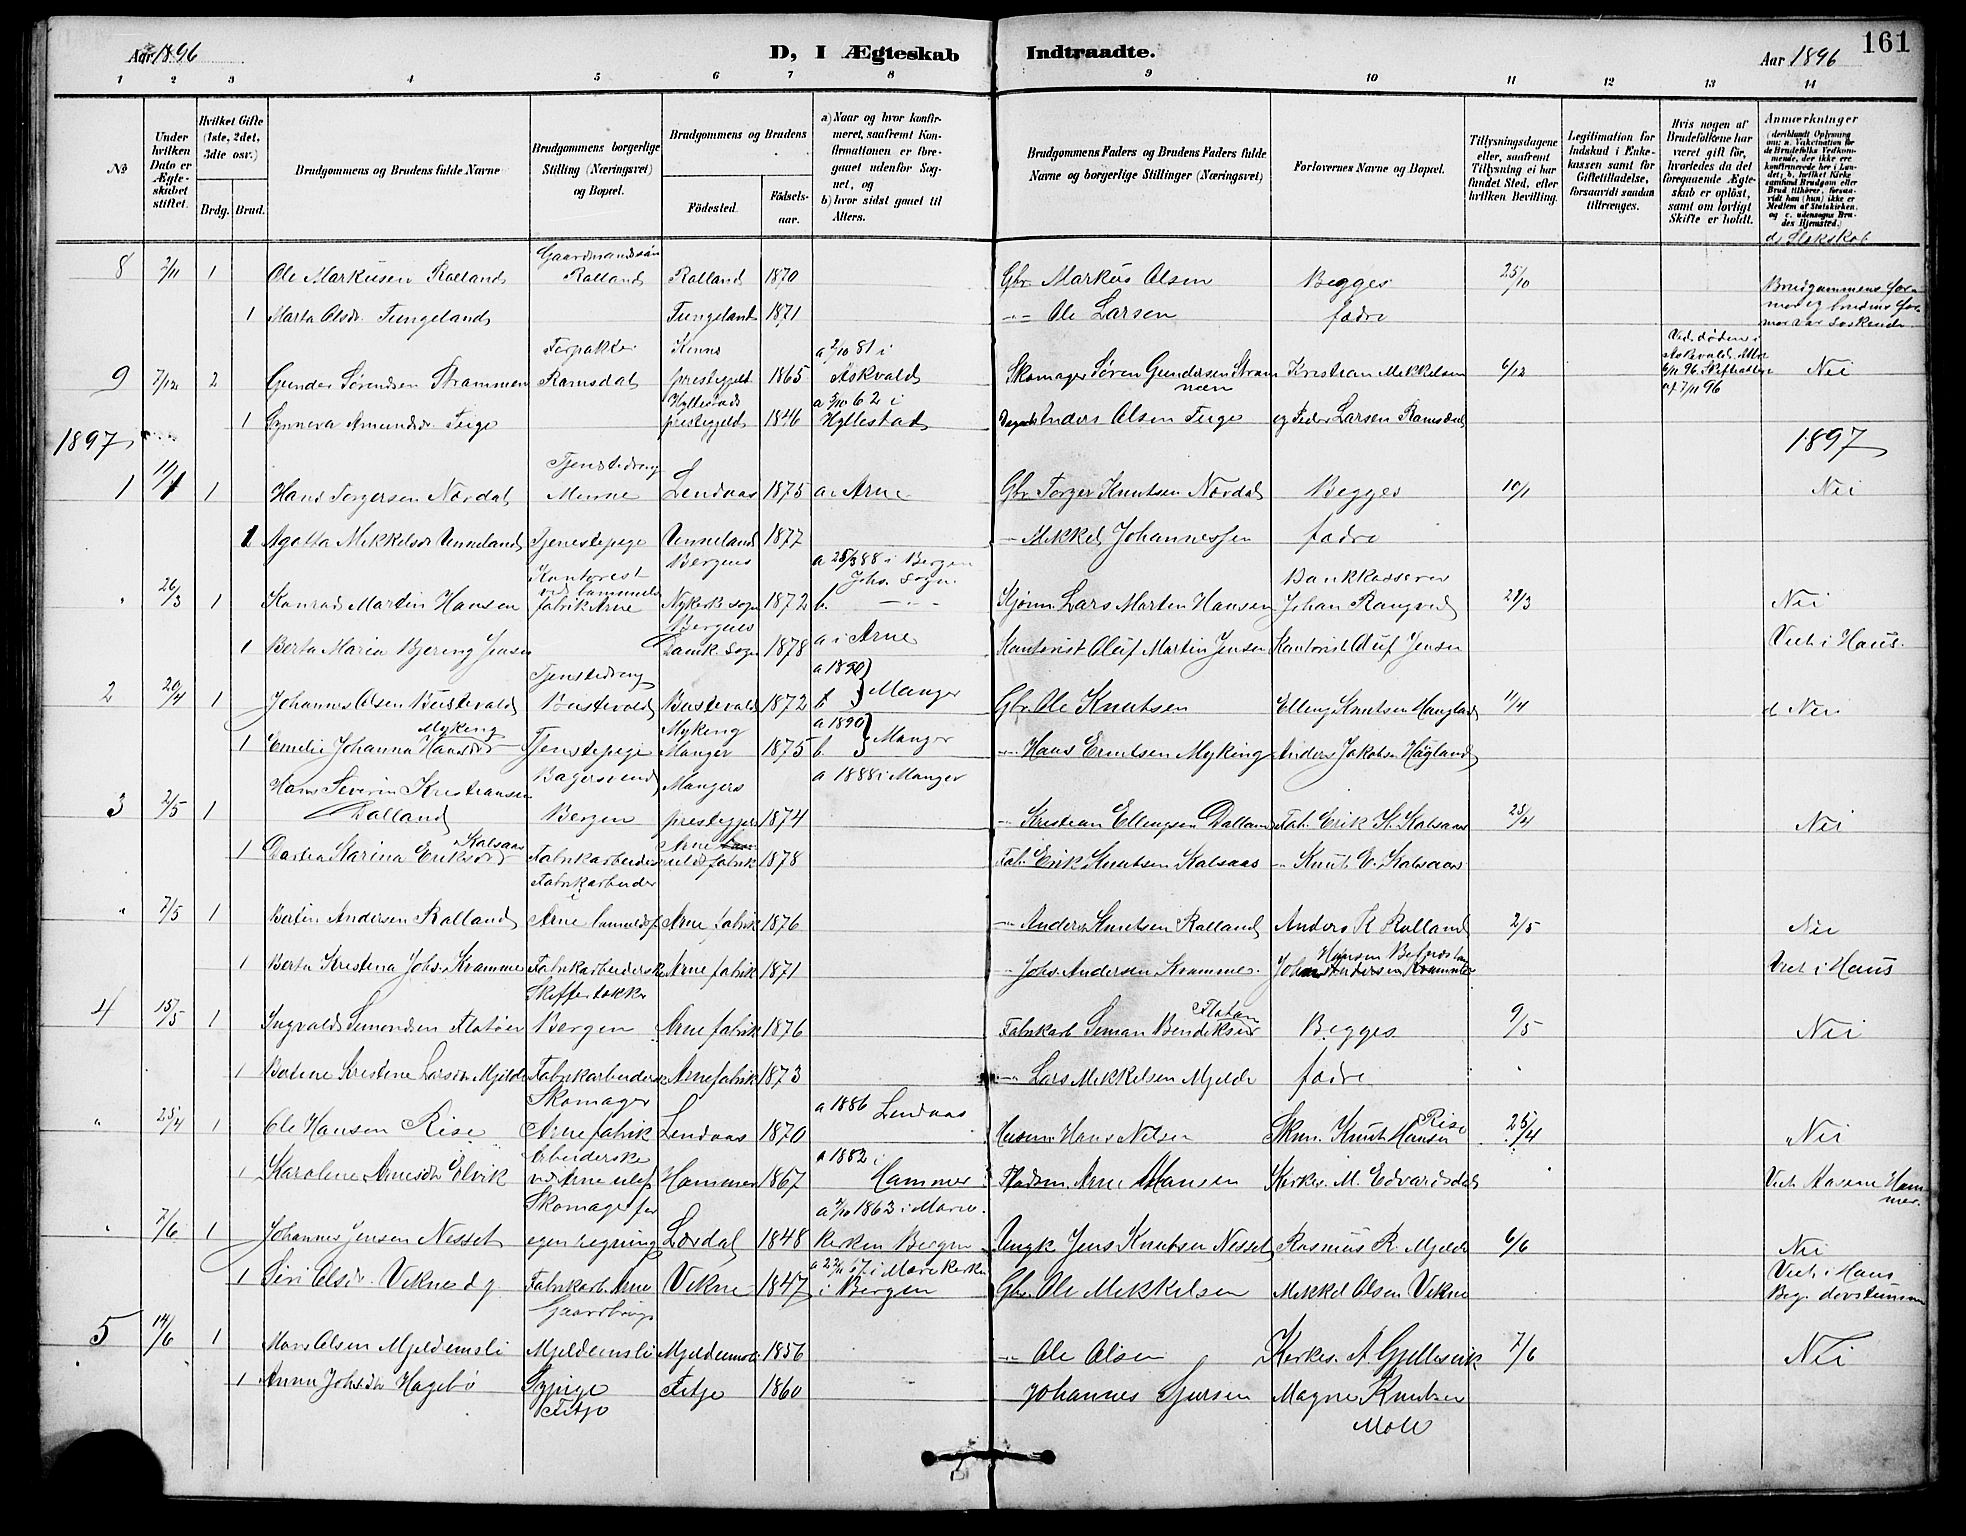 Aar 1896 D, I Ægteskab Indtraadte. Aar 1896 161
1 2 3 4 5 6 7 8 9 10 11 12 13 14
No
Under hvilken Dato er Ægteskabet stiftet.
Hvilket Gifte (1ste, 2det, 3die osv.)
Brdg. Brud.
Brudgommens og Brudens fulde Navne
Brudgommens borgerlige Stilling (Næringsvei) og Bopæl.
Brudgommens og Brudens
Fødested. Fødsels-aar.
a) Naar og hvor konfirmeret, saafremt Konfirmationen er foregaaet udenfor Sognet, og
b) hvor sidst gaaet til Alters.
Brudgommens Faders og Brudens Faders fulde Navne og borgerlige Stillinger (Næringsvei)
Forlovernes Navne og Bopæl.
Tillysningsdagene eller, saafremt Tillysning ei har fundet Sted, efter hvilken Bevilling.
Legitimation for Indskud i Enkekassen samt for Giftetilladelse, forsaavidt saadan tiltrænges.
Hvis nogen af Brudefolkene har været gift før, hvorledes da det foregaaende Ægteskab er opløst, samt om lovligt Skifte er holdt.
Anmærkninger (deriblandt Oplysning om: a. Vakcination for de Brudefolks Vedkommende, der ikke ere konfirmerede her i Landet; b. hvilket Kirkesamfund Brudgom eller Brud tilhører, forsaavidt han (hun) ikke er Medlem af Statskirken, og c. udensogns Brudes Hjemsted.)
d. Slekskab
8 7/11 1 Ole Markusen Rolland Gaardmandssøn Rolland Rolland 1870 Gbr. Markus Olsen Begges 25/10
Brudgommens for-mor og brudens for-mor var søskende
1 Marta Olsdr. Tungeland Tungeland 1871 -"- Ole Larsen fædre
9 7/12 2 Gunder Sørensen Strammen Ramsdal Kinns prestegjeld 1865 a 2/10 81 i Askvold Skomager Søren Gundersen Strammen Kristian Mikkelsen 6/12 Nei
1 Gynneva Amundsdr. Teige Hyllestads prestegjeld 1846 a 62 i Hyllestad Anders Olsen Teige og Peder Larsen Ramsdal
1897 1897
1 11/1 1 Hans Torgersen Nordal Tjenestedreng Mune Lindaas 1875 a. Arne Gbr. Torger Knutsen Nordal Begges 10/1 Nei
1 Agatha Mikkelsdr Unneland Tjenestepige Unneland 1877 -"- Mikkel Johannessen fædre
" 26/3 1 Konrad Martin Hansen Kontorist ved fabrik Arne Bergens Nykirke sogn 1872 a 25/3 88 i Bergen Johs. sogn. b. -"- Lars Martin Hansen Bankkasserer Johan 21/3 Nei
1 Berta Maria Bjering Jensen Bergens Domk. sogn 1878 a i Arne Kontorist Oluf Martin Jensen Kontorist Oluf Jensen Viet i Haus.
2 20/4 1 Johannes Olsen Bustevold Tjenestedreng Bustevold Bustevold 1872 a 1890 b. } Manger Gbr. Ole Knutsen Elling Knutsen Haugland 11/4 d Nei
1 Emilie Johanna Hansdr Myking Tjenestepige Myking Manger 1875 a 1890 b. } Manger -"- Hans Myking Anders Jakobsen Høgland
3 2/5 1 Hans Severin Kristiansen Dalland Bagersvend Bergen Mangers prestegjeld 1874 a 1888 i Manger -"- Kristian Ellingsen Dalland Fab. Erik K. Kalsaas 25/4 Nei
1 Dortea Karina Eriksdr Kalsaas Fabrikarbeider Arne fabrik 1878 Fab. Erik Knutsen Kalsaas -"- Knut E. Kalsaas
" 7/5 1 Botin Andersen Rolland Fabrikarbeider i Arne Arne fabrik 1876 -"- Anders Knutsen Rolland Anders K Rolland 2/5 Nei
1 Berta Kristina Johs. Krammer Fabrikarbeiderske Arne fabrik 1871 -"- Johs. Andersen Krammer. Viet i Haus
4 15/5 1 Ingvald Simonsen Flatøen Skiffertækker Bergen Arne fabrik 1876 Fabrikarb. Simon Bendiksen Flatøen Begges 9/5 Nei
1 Botine Kristine Larsdr Mjelde Fabrikarbeiderske Arne fabrik 1873 -"- Lars Mikkelsen Mjelde fædre
" 25/4 1 Ole Hansen Rise Skomager Arne fabrik Lindaas 1870 a 1886 Lindaas Husm. Hans Nilsen Skm. Knut Hansen Rise 25/4 Nei
1 Karoline Arnesdr Elvik Arbeiderske ved Arne Hammer 1867 a 1882 i Hammer Arne Hansen Kirkes. M. Edvardsdal Viet Hammer.
" 7/6 1 Johannes Jensen Nesset Skomager for egen regning Lærdal 1848 a 1863 i Marie-kirken Bergen Ungk. Jens Knutsen Nesset Rasmus R. Mjelde 6/6 Nei
1 Siri Olsdr. Vikne Fabrikarb. Arne Vikne 1847 i Mariekirke i Bergen Gbr. Ole Mikkelsen Mikkel Olsen Vikne Viet i Haus Beg. døvstumme
5 14/6 1 Mons Olsen Mjeldemsli Gaardbruger Mjeldemsli Mjeldemsli 1856 -"- Ole Olsen Kirkes. A Gjellesvik 7/6 Nei
1 Anna Johsdtr Hagebø Sypige Fitje Fitje 1860 Johannes Sjursen Magne Knutsen Moll